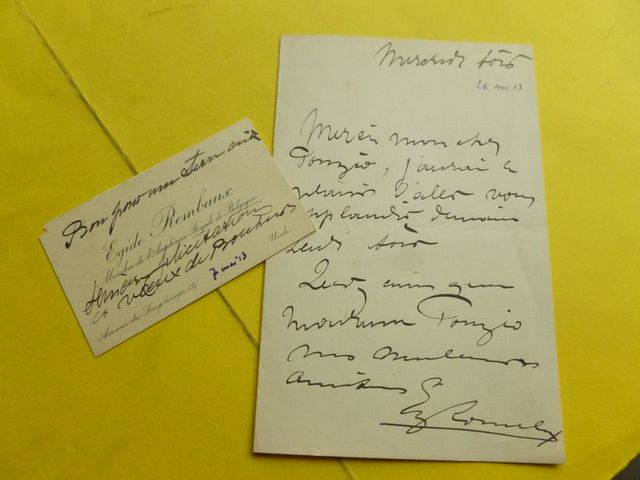 Mercredi soir
26 Nov 13
Merci mon cher
Ponzio, j'aurai le
plaisir d'aller vous
applaudir demain
Jeudi soir
ainsi que
Madame Ponzio
nos meilleures
amitiés
Eg Rombaux
Bon pour un
Egide Rombaux
Membre de l'Académie Royale de Belgique
félicitations
et vœux de Bonheur
7 mai 13
Uccle
Avenue de Longchamps,